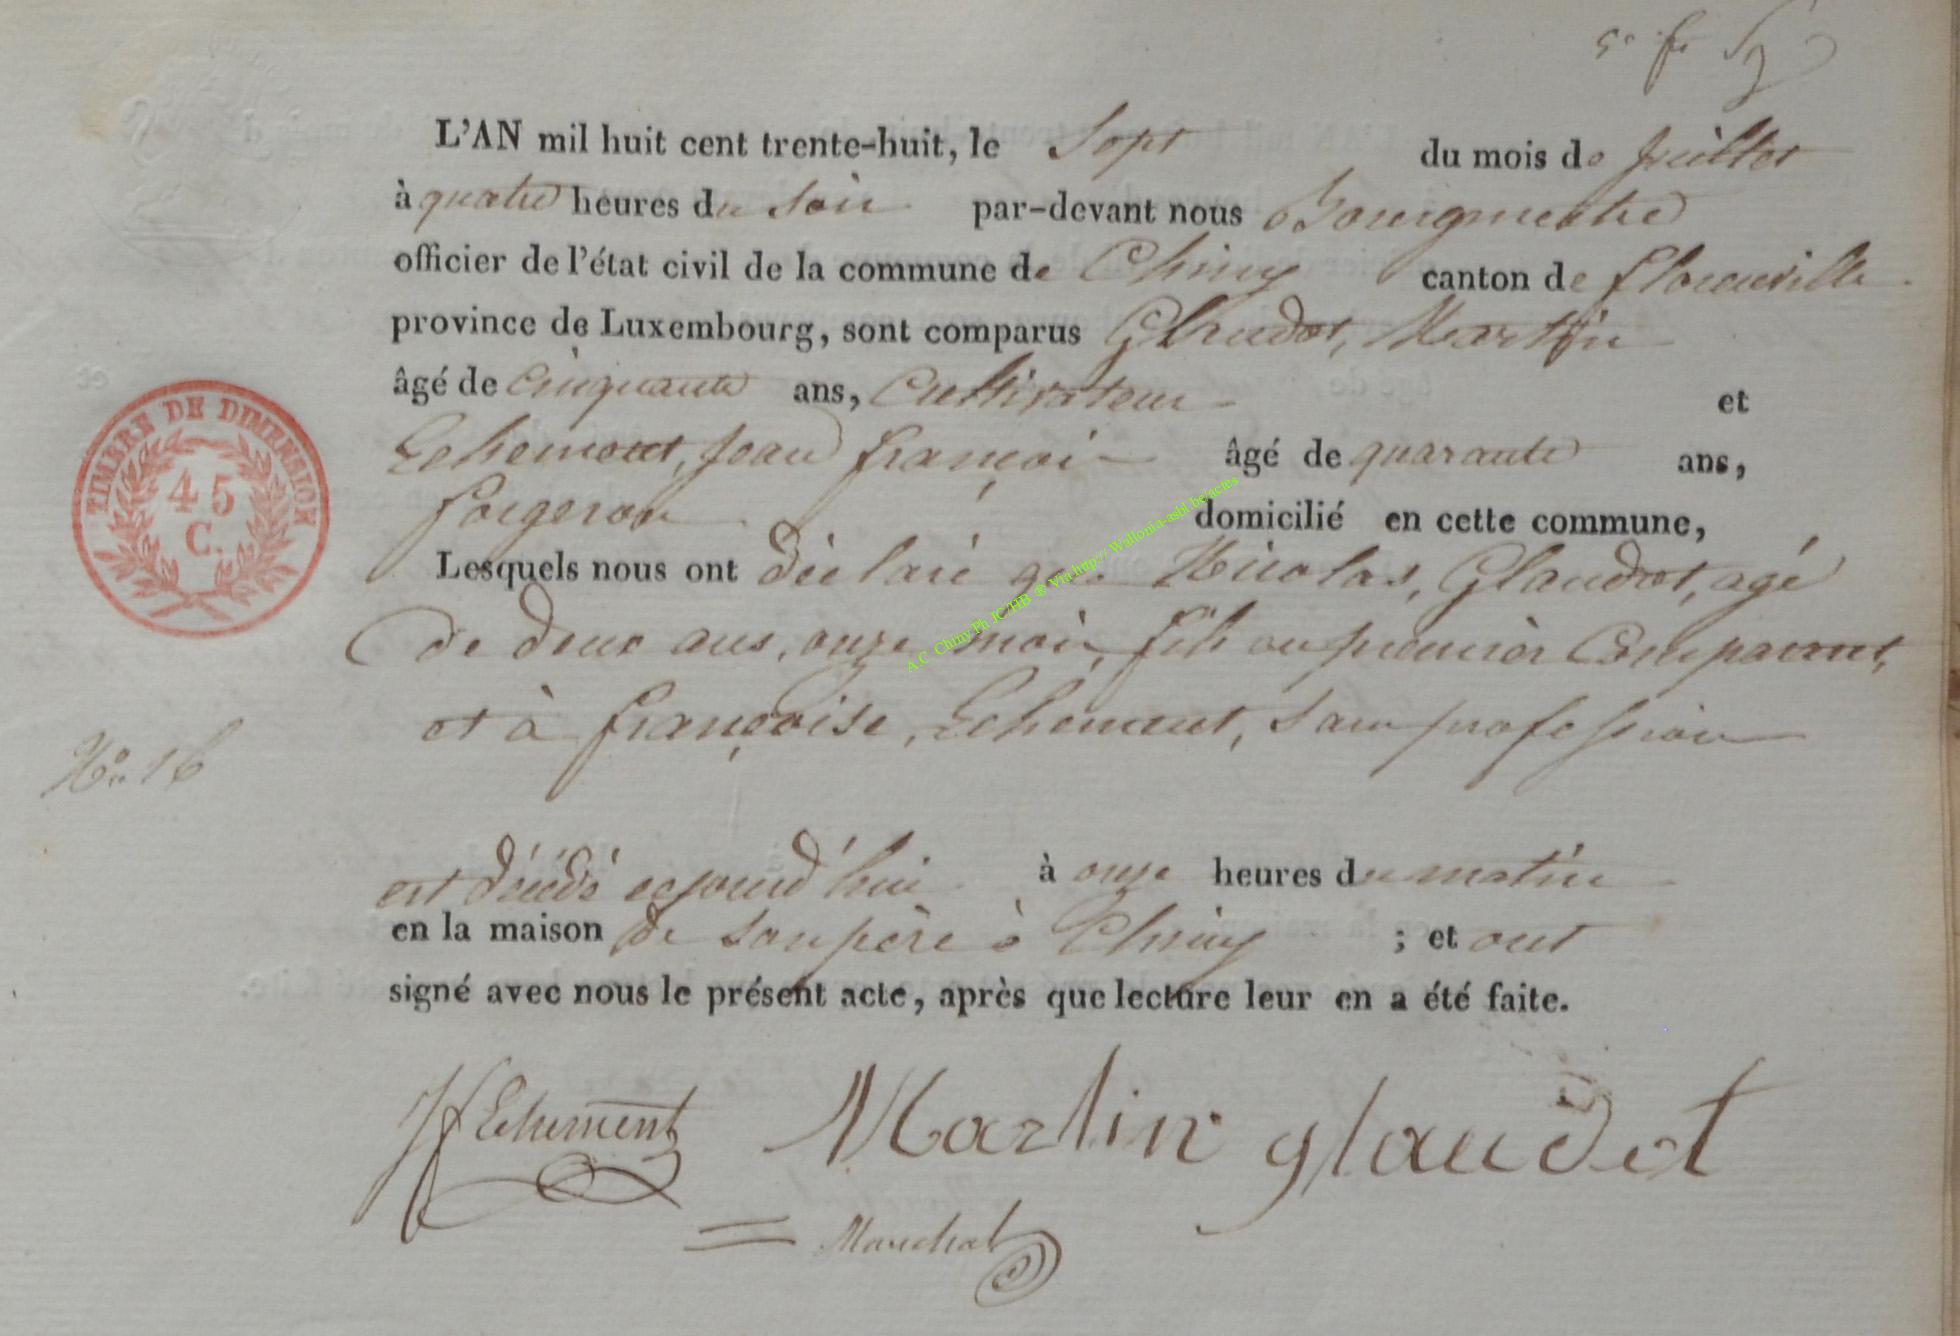 L'AN mil huit cent trente-huit, le Sept du mois de Juillet
à quatre heures du Soir par-devant nous Bourgmestre
officier de l'état civil de la commune de Chiny canton de florenville
province de Luxembourg, sont comparus Glaudot, Martin
âgé de Cinquante ans, Cultivateur et
Echement, Jean françois âgé de quarante ans,
forgeron domicilié en cette commune,
Lesquels nous ont déclaré que Nicolas, Glaudot, agé
de deux ans, onze mois, fils au premier Comparant,
et à françoise, Echement, sans profession
est décédé aujourd'hui à onze heures du matin
en la maison de son père à Chiny ; et ont
signé avec nous le présent acte, après que lecture leur en a été faite.
JfEchement Martin glaudot
Marechal
No 16
TIMBRE DE DIMENSION
45
C.
A.C Chiny Ph JC/HB ® Via http:// Wallonia-asbl.be/actes